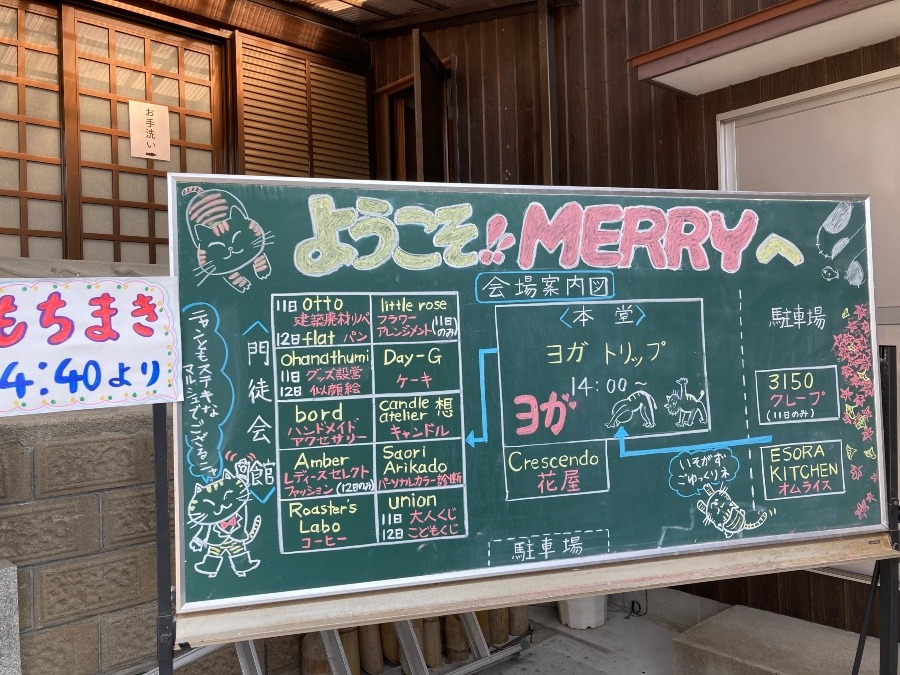 お手洗い
もちまき
4:40より
ようこそ!! MERRYへ
会場案内図
ニャンともステキな
マルシェでござるニャ
〈門徒会館〉
11日 otto
建築廃材リバ
12日 flat パン
little rose
フラワー
アレンジメント(11日のみ)
ohanathumi
11日 グッズ設営
12日 似顔絵
Day-G
ケーキ
bord
ハンドメイド
アクセサリー
candle
atelier 想
キャンドル
Amber
レディースセレクト
ファッション(12日のみ)
Saori
Arikado
パーソナルカラー診断
Roaster's
Labo
コーヒー
union
11日 大人くじ
12日 こどもくじ
〈本堂〉
ヨガ トリップ
14:00~
ヨガ
Crescendo
花屋
駐車場
駐車場
3150
クレープ
(11日のみ)
ESORA
KITCHEN
オムライス
いそがず
ごゆっくりネ